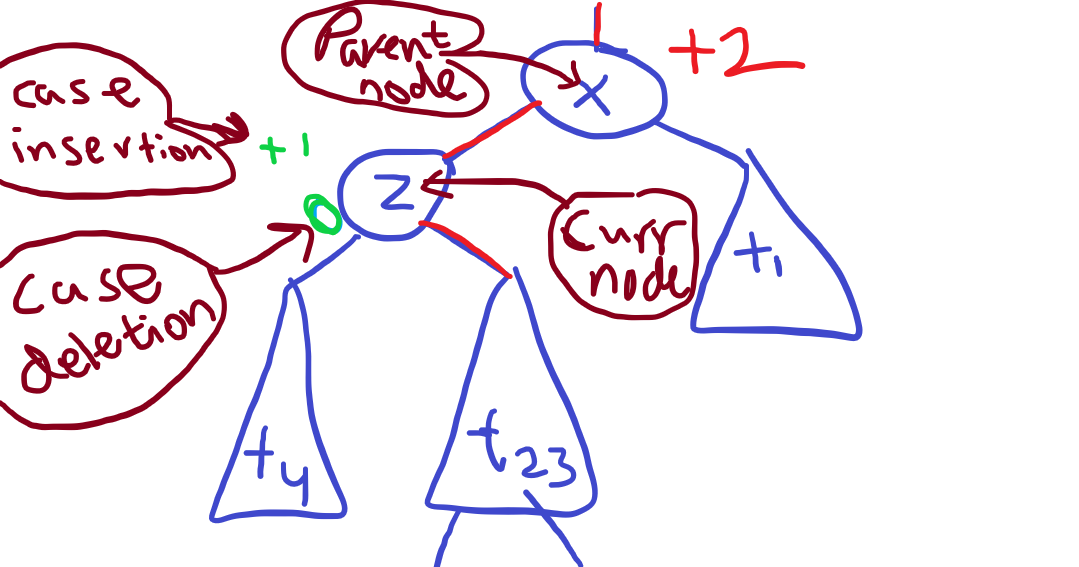 Parent
node
+2
X
case
insertion
+1
Z
0
Curr
node
t1
case
deletion
t4
t23